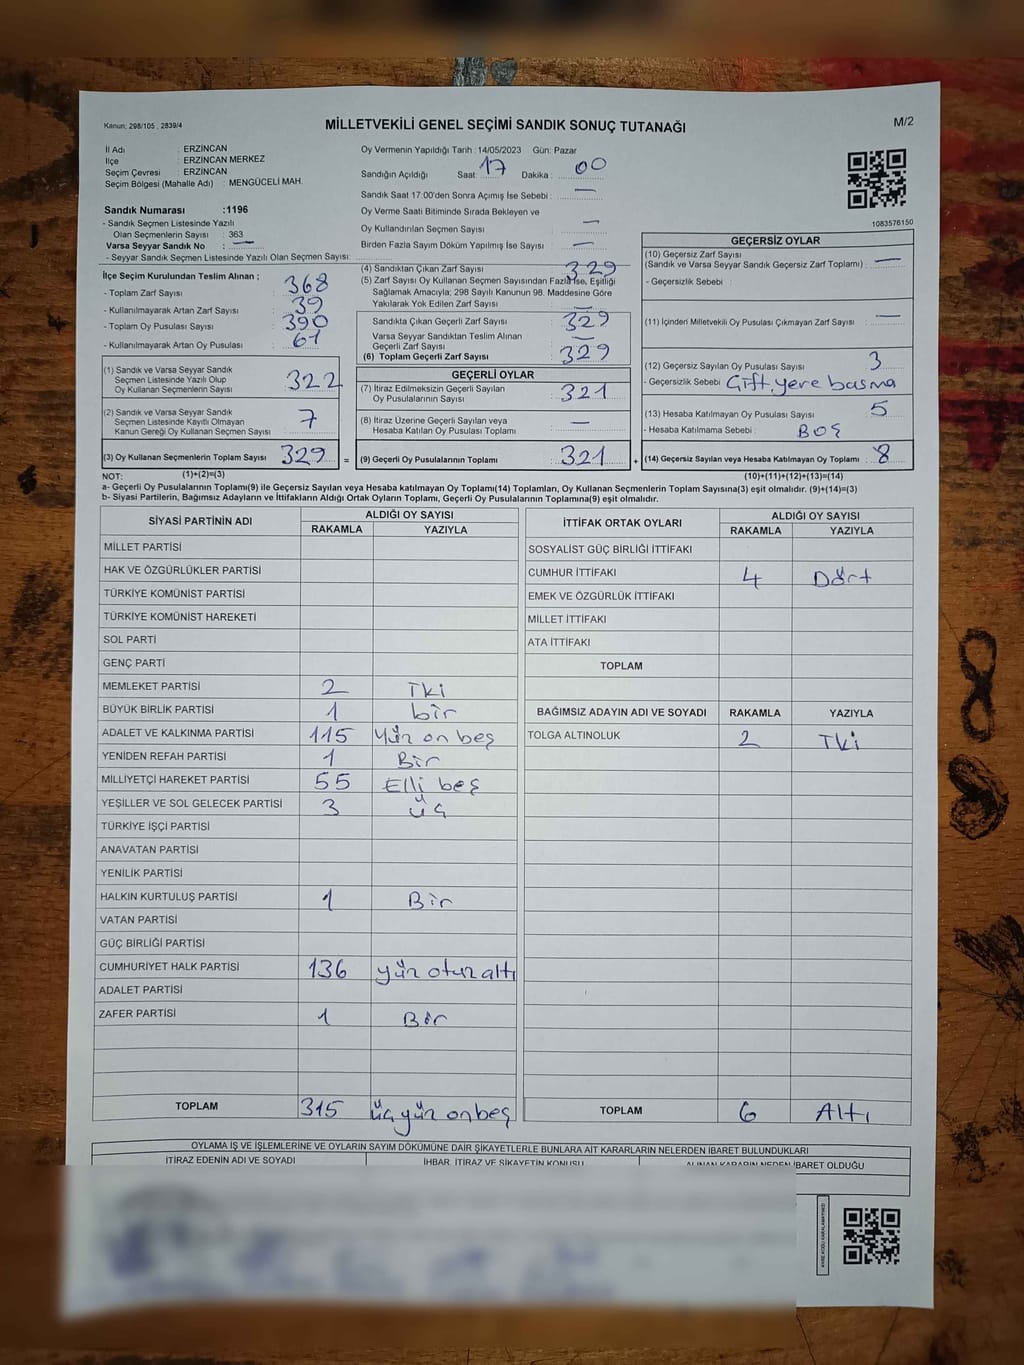 Kanun: 298/105 , 2839/4
MİLLETVEKİLİ GENEL SEÇİMİ SANDIK SONUÇ TUTANAĞI
M/2
İl Adı : ERZİNCAN
İlçe : ERZİNCAN MERKEZ
Seçim Çevresi : ERZİNCAN
Seçim Bölgesi (Mahalle Adı) : MENGÜCELİ MAH.
Sandık Numarası :1196
- Sandık Seçmen Listesinde Yazılı
Olan Seçmenlerin Sayısı : 363
Varsa Seyyar Sandık No : —
- Seyyar Sandık Seçmen Listesinde Yazılı Olan Seçmen Sayısı:
Oy Vermenin Yapıldığı Tarih : 14/05/2023 Gün: Pazar
Sandığın Açıldığı Saat: 17 Dakika : 00
Sandık Saat 17.00'den Sonra Açılmış İse Sebebi : —
Oy Verme Saati Bitiminde Sırada Bekleyen ve
Oy Kullandırılan Seçmen Sayısı : —
Birden Fazla Sayım Döküm Yapılmış İse Sayısı : —
1083576150
İlçe Seçim Kurulundan Teslim Alınan ;
- Toplam Zarf Sayısı : 368
- Kullanılmayarak Artan Zarf Sayısı : 39
- Toplam Oy Pusulası Sayısı : 390
- Kullanılmayarak Artan Oy Pusulası : 61
(1) Sandık ve Varsa Seyyar Sandık
Seçmen Listesinde Yazılı Olup
Oy Kullanan Seçmenlerin Sayısı : 322
(2) Sandık ve Varsa Seyyar Sandık
Seçmen Listesinde Kayıtlı Olmayan
Kanun Gereği Oy Kullanan Seçmen Sayısı : 7
(3) Oy Kullanan Seçmenlerin Toplam Sayısı : 329
(1)+(2)=(3)
(4) Sandıktan Çıkan Zarf Sayısı : 329
(5) Zarf Sayısı Oy Kullanan Seçmen Sayısından Fazla İse, Eşitliği
Sağlamak Amacıyla; 298 Sayılı Kanunun 98. Maddesine Göre
Yakılarak Yok Edilen Zarf Sayısı : —
Sandıkta Çıkan Geçerli Zarf Sayısı : 329
Varsa Seyyar Sandıktan Teslim Alınan
Geçerli Zarf Sayısı : —
(6) Toplam Geçerli Zarf Sayısı : 329
GEÇERLİ OYLAR
(7) İtiraz Edilmeksizin Geçerli Sayılan
Oy Pusulalarının Sayısı : 321
(8) İtiraz Üzerine Geçerli Sayılan veya
Hesaba Katılan Oy Pusulası Toplamı : —
= (9) Geçerli Oy Pusulalarının Toplamı : 321 +
GEÇERSİZ OYLAR
(10) Geçersiz Zarf Sayısı
(Sandık ve Varsa Seyyar Sandık Geçersiz Zarf Toplamı) : —
- Geçersizlik Sebebi :
(11) İçinden Milletvekili Oy Pusulası Çıkmayan Zarf Sayısı : —
(12) Geçersiz Sayılan Oy Pusulası Sayısı : 3
- Geçersizlik Sebebi : Çift, yere basma
(13) Hesaba Katılmayan Oy Pusulası Sayısı : 5
- Hesaba Katılmama Sebebi : BOŞ
(14) Geçersiz Sayılan veya Hesaba Katılmayan Oy Toplamı : 8
(10)+(11)+(12)+(13)=(14)
NOT:
a- Geçerli Oy Pusulalarının Toplamı(9) ile Geçersiz Sayılan veya Hesaba Katılmayan Oy Toplamı(14) Toplamları, Oy Kullanan Seçmenlerin Toplam Sayısına(3) eşit olmalıdır. (9)+(14)=(3)
b- Siyasi Partilerin, Bağımsız Adayların ve İttifakların Aldığı Ortak Oyların Toplamı, Geçerli Oy Pusulalarının Toplamına(9) eşit olmalıdır.
SİYASİ PARTİNİN ADI ALDIĞI OY SAYISI
RAKAMLA YAZIYLA
MİLLET PARTİSİ
HAK VE ÖZGÜRLÜKLER PARTİSİ
TÜRKİYE KOMÜNİST PARTİSİ
TÜRKİYE KOMÜNİST HAREKETİ
SOL PARTİ
GENÇ PARTİ
MEMLEKET PARTİSİ 2 İki
BÜYÜK BİRLİK PARTİSİ 1 bir
ADALET VE KALKINMA PARTİSİ 115 Yüz on beş
YENİDEN REFAH PARTİSİ 1 Bir
MİLLİYETÇİ HAREKET PARTİSİ 55 Elli beş
YEŞİLLER VE SOL GELECEK PARTİSİ 3 üç
TÜRKİYE İŞÇİ PARTİSİ
ANAVATAN PARTİSİ
YENİLİK PARTİSİ
HALKIN KURTULUŞ PARTİSİ 1 Bir
VATAN PARTİSİ
GÜÇ BİRLİĞİ PARTİSİ
CUMHURİYET HALK PARTİSİ 136 yüz otuz altı
ADALET PARTİSİ
ZAFER PARTİSİ 1 Bir
TOPLAM 315 üç yüz on beş
İTTİFAK ORTAK OYLARI ALDIĞI OY SAYISI
RAKAMLA YAZIYLA
SOSYALİST GÜÇ BİRLİĞİ İTTİFAKI
CUMHUR İTTİFAKI 4 Dört
EMEK VE ÖZGÜRLÜK İTTİFAKI
MİLLET İTTİFAKI
ATA İTTİFAKI
TOPLAM
BAĞIMSIZ ADAYIN ADI VE SOYADI RAKAMLA YAZIYLA
TOLGA ALTINOLUK 2 İki
TOPLAM 6 Altı
OYLAMA İŞ VE İŞLEMLERİNE VE OYLARIN SAYIM DÖKÜMÜNE DAİR ŞİKAYETLERLE BUNLARA AİT KARARLARIN NELERDEN İBARET BULUNDUKLARI
İTİRAZ EDENİN ADI VE SOYADI İHBAR, İTİRAZ VE ŞİKAYETİN KONUSU ALINAN KARARIN NEDEN İBARET OLDUĞU